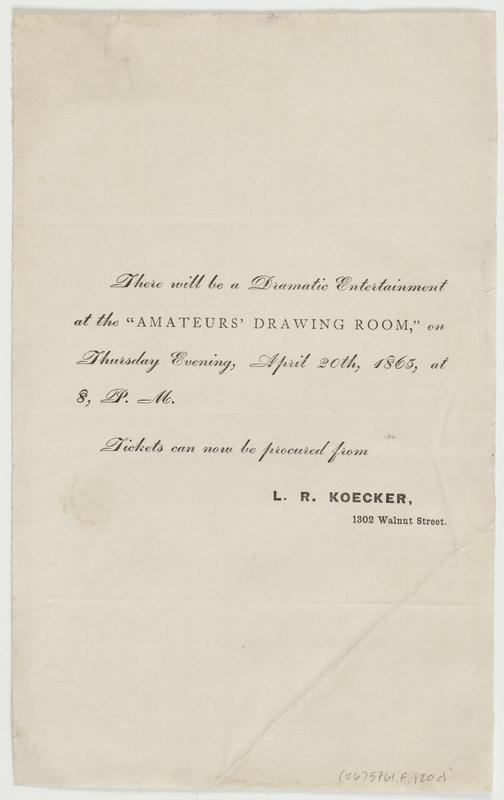 There will be a Dramatic Entertainment
at the "AMATEURS' DRAWING ROOM," on
Thursday Evening, April 20th, 1865, at
8, P. M.
Tickets can now be procured from
L. R. KOECKER,
1302 Walnut Street.
(26)5761.F.120d